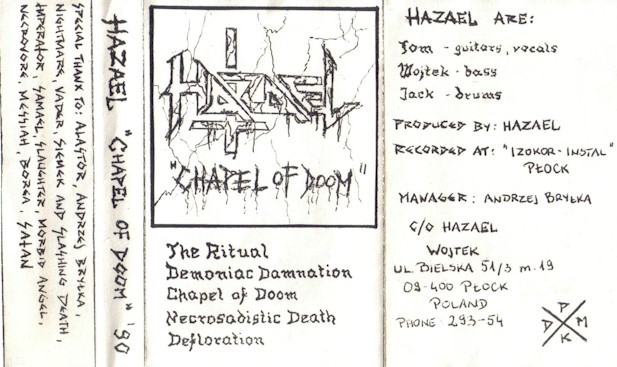 SPECIAL THANK TO: ALASTOR, ANDRZEJ BRYŁKA,
NIGHTMARE, VADER, SIEMEK AND SLASHING DEATH,
IMPERATOR, SAMAEL, SLAUGHTER, MORBID ANGEL,
NECROVORE, MESSIAH, BOREK, SATAN
HAZAEL "CHAPEL OF DOOM" '90
HAZAEL
"CHAPEL OF DOOM"
The Ritual
Demoniac Damnation
Chapel of Doom
Necrosadistic Death
Defloration
HAZAEL ARE:
Tom - guitars, vocals
Wojtek - bass
Jack - drums
PRODUCED BY: HAZAEL
RECORDED AT: "IZOKOR-INSTAL"
PŁOCK
MANAGER: ANDRZEJ BRYŁKA
C/O HAZAEL
WOJTEK
UL. BIELSKA 51/3 m. 19
09-400 PŁOCK
POLAND
PHONE: 293-54
P
D M
K